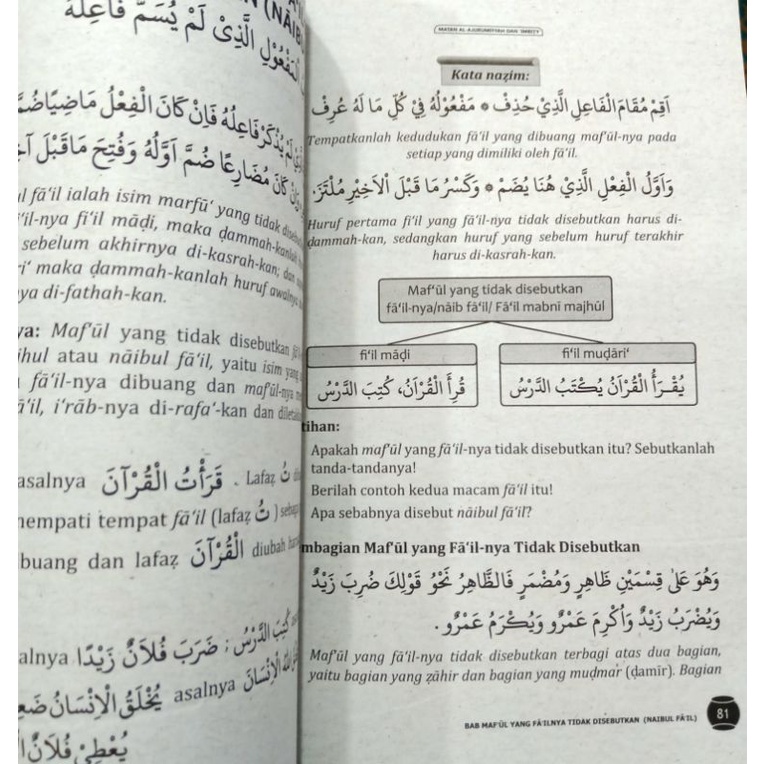 (NĀIB
الْمَفْعُوْلِ الَّذِيْ لَمْ يُسَمَّ فَاعِلُهُ
يُذْكَرْ فَاعِلُهُ فَاِنْ كَانَ الْفِعْلُ مَاضِيًا ضُمَّ
كَانَ مُضَارِعًا ضُمَّ اَوَّلُهُ وَفُتِحَ مَا قَبْلَ
fā'il ialah isim marfū' yang tidak
fi'il māḍi, maka ḍammah-kanlah
sebelum akhirnya di-kasrah-kan; dan
maka ḍammah-kanlah huruf awalnya
di-fathah-kan.
Maf'ūl yang tidak disebutkan
atau nāibul fā'il, yaitu isim yang
fā'il-nya dibuang dan maf'ūl-nya
i'rāb-nya di-rafa'-kan dan
asalnya قَرَأْتُ الْقُرْآنَ . Lafaẓ تُ
tempat fā'il (lafaẓ تُ )
dan lafaẓ الْقُرْآنَ diubah
كُتِبَ الدَّرْسُ ; ضَرَبَ فُلَانٌ زَيْدًا
asalnya يُخْلَقُ الْاِنْسَانُ
فُلَانٌ
MATAN AL-AJURUMIYYAH DAN 'IMRITY
Kata naẓim:
اَقِمْ مُقَامَ الْفَاعِلِ الَّذِيْ حُذِفْ * مَفْعُوْلُهُ فِيْ كُلِّ مَا لَهُ عُرِفْ
Tempatkanlah kedudukan fā'il yang dibuang maf'ūl-nya pada
setiap yang dimiliki oleh fā'il.
وَاَوَّلُ الْفِعْلِ الَّذِيْ هُنَا يُضَمْ * وَكَسْرُ مَا قَبْلَ الْاَخِيْرِ مُلْتَزَمْ.
Huruf pertama fi'il yang fā'il-nya tidak disebutkan harus di-
ḍammah-kan, sedangkan huruf yang sebelum huruf terakhir
harus di-kasrah-kan.
Maf'ūl yang tidak disebutkan
fā'il-nya/nāib fā'il/ Fā'il mabnī majhūl
fi'il māḍi
fi'il muḍāri'
قُرِأَ الْقُرْاٰنُ، كُتِبَ الدَّرْسُ
يُقْرَأُ الْقُرْاٰنُ يُكْتَبُ الدَّرْسُ
tihan:
Apakah maf'ūl yang fā'il-nya tidak disebutkan itu? Sebutkanlah
tanda-tandanya!
Berilah contoh kedua macam fā'il itu!
Apa sebabnya disebut nāibul fā'il?
mbagian Maf'ūl yang Fā'il-nya Tidak Disebutkan
وَهُوَ عَلٰى قِسْمَيْنِ ظَاهِرٍ وَمُضْمَرٍ فَالظَّاهِرُ نَحْوُ قَوْلِكَ ضُرِبَ زَيْدٌ
وَيُضْرَبُ زَيْدٌ وَاُكْرِمَ عَمْرٌو وَيُكْرَمُ عَمْرٌو .
Maf'ūl yang fā'il-nya tidak disebutkan terbagi atas dua bagian,
yaitu bagian yang ẓāhir dan bagian yang muḍmar (ḍamīr). Bagian
BAB MAF'ŪL YANG FĀ'ILNYA TIDAK DISEBUTKAN (NAIBUL FĀ'IL)
81